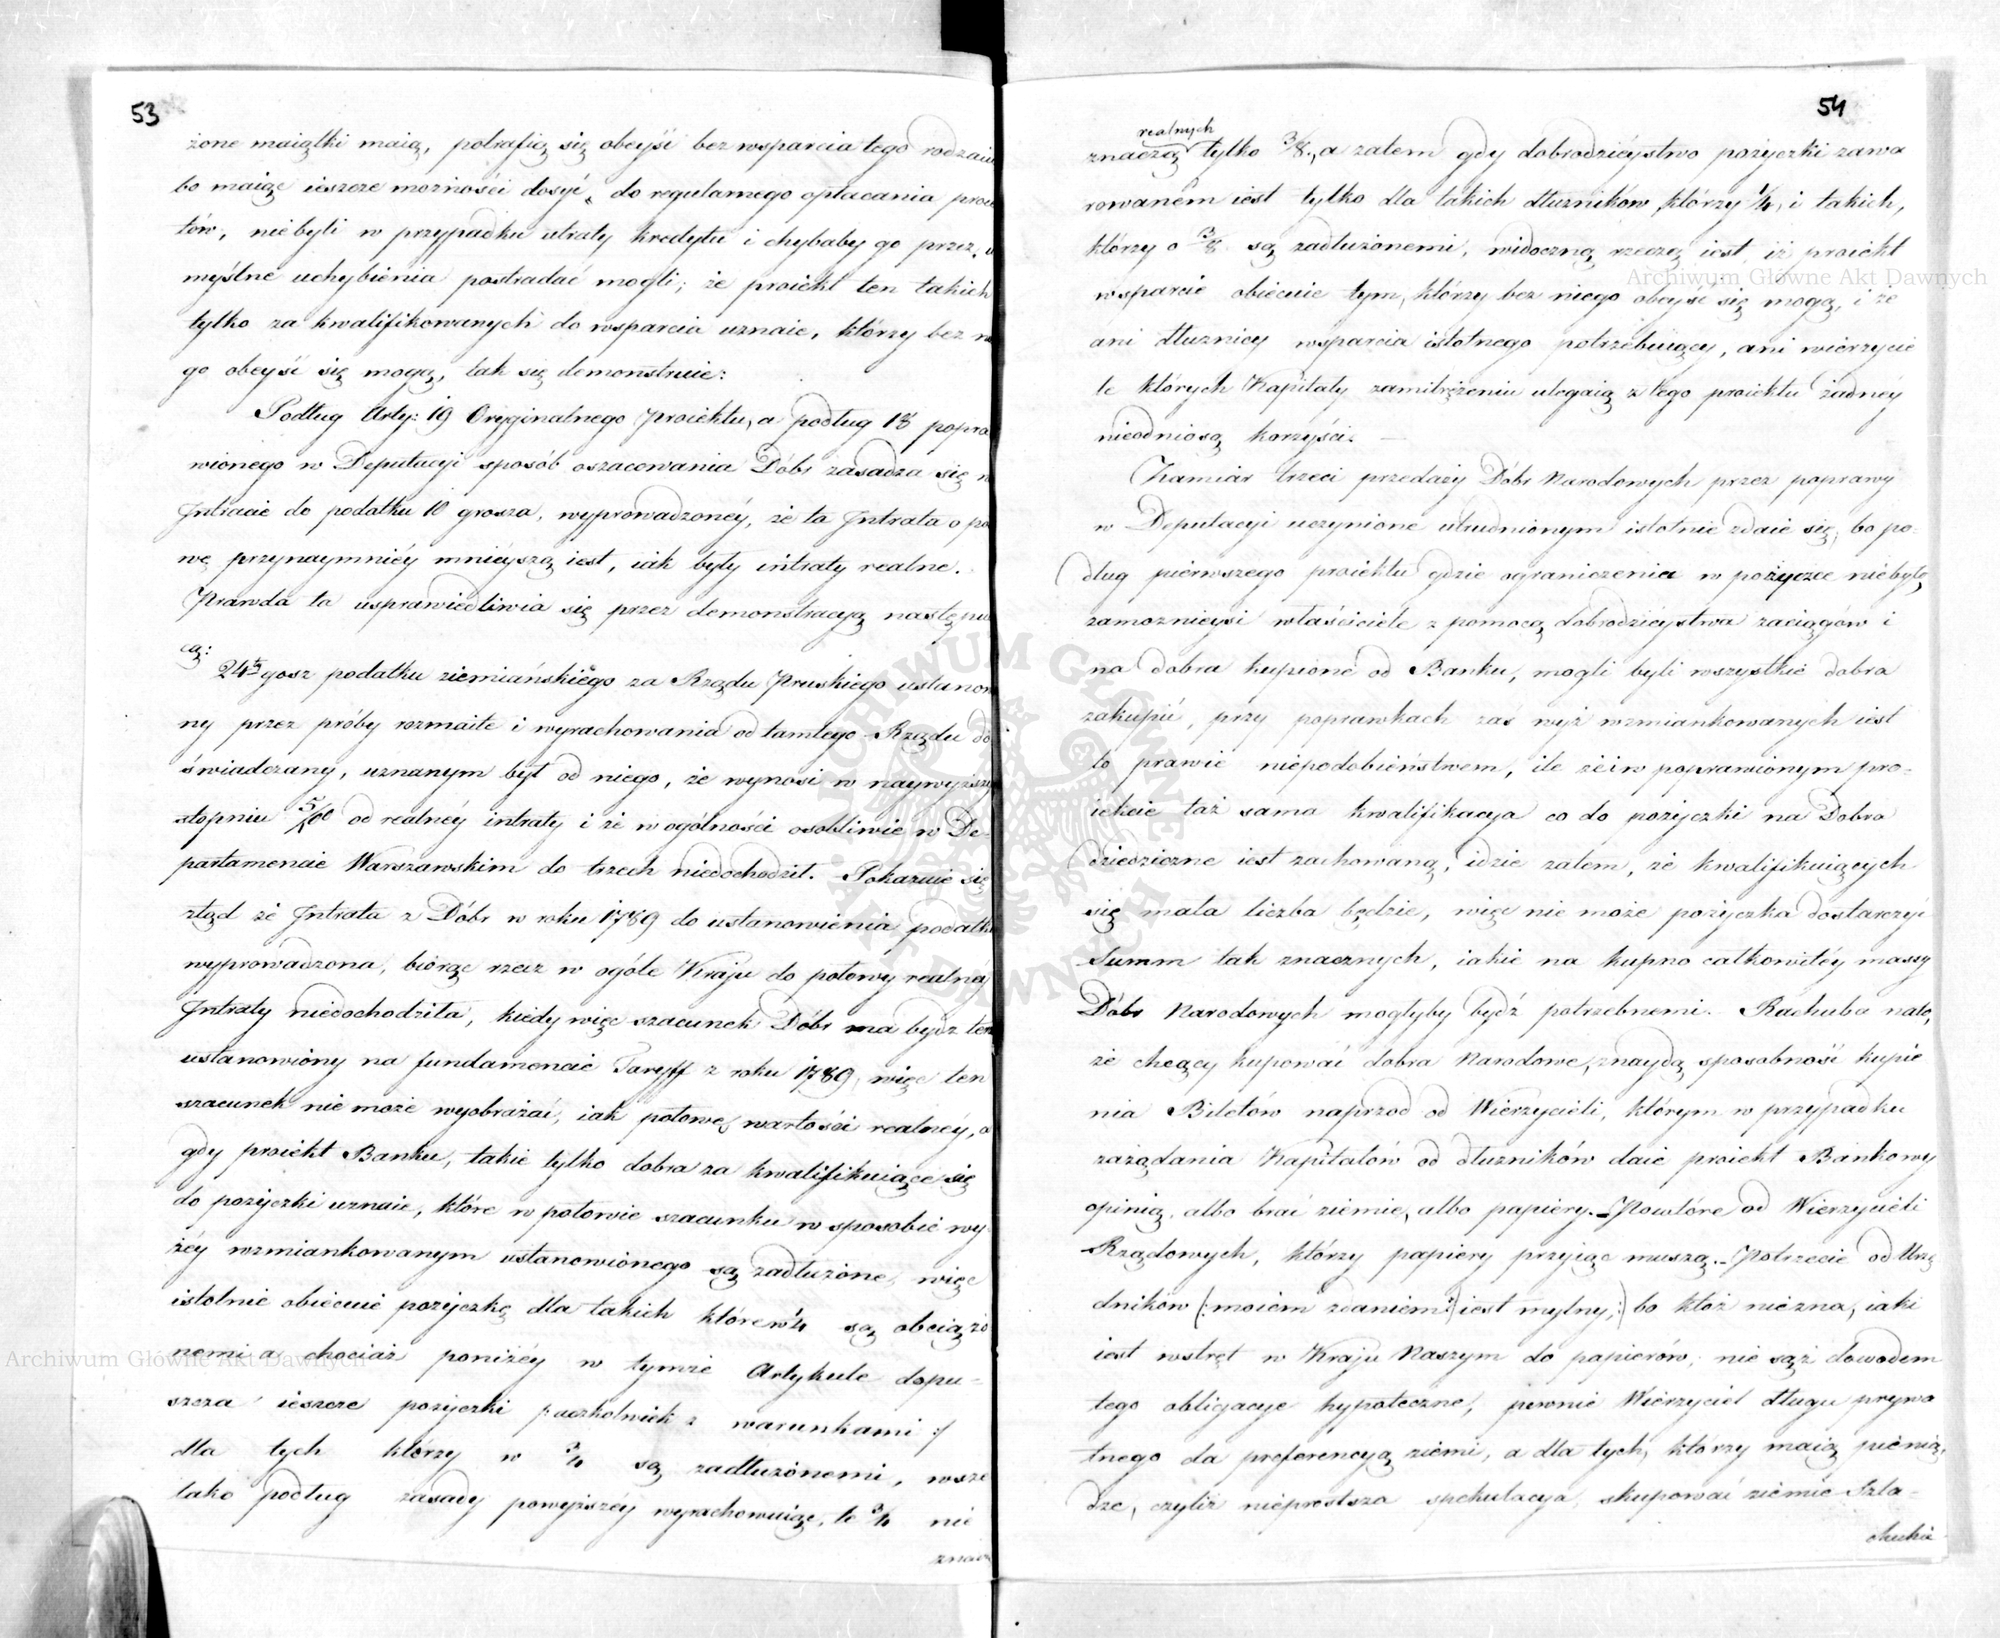 53
żone maiątki maią, potrafią się obeyść bez wsparcia tego rodzaiu
bo maiąc ieszcze możności dosyć, do regularnego opłacania proce
tów, niebyli w przypadku utraty kredytu i chybaby go przez, u
myślne uchybienia postradać mogli; że proiekt ten takich
tylko za kwalifikowanych do wsparcia uznaie, którzy bez n
go obeyść się mogą, tak się demonstruie:
Podług Arty: 19 Oryginalnego Proiektu, a podług 18 popra
wionego w Deputacyi sposób oszacowania Dóbr zasadza się n
Intracie do podatku 10 grosza, wyprowadzonéy, że ta Intrata o po
wę przynaymniéy mnieyszą iest, iak były intraty realne.
Prawda ta usprawiedliwia się przez demonstracyą następui
cą:
24ty gosz podatku ziemiańskiego za Rządu Pruskiego ustanow
ny przez próby rozmaite i wyrachowania od tamtego Rządu do
świadczany, uznanym był od niego, że wynosi w naywyższy
stopniu 5/100 od realnéy intraty i że w ogólności osobliwie w De-
partamencie Warszawskim do trzech niedochodził. Pokazuie się
ztąd że Intrata z Dóbr w roku 1789 do ustanowienia podatku
wyprowadzona, biorąc rzecz w ogóle Kraju do połowy realnéy
Intraty niedochodziła, kiedy więc szacunek Dóbr ma bydz ten
ustanowiony na fundamencie Taryff z roku 1789, więc ten
szacunek nie może wyobrażać, iak połowę wartości realnéy, a
gdy proiekt Banku, takie tylko dobra za kwalifikuiące się
do pożyczki uznaie, które w połowie szacunku w sposobie wy
żéy wzmiankowanym ustanowionego są zadłużone, więc
istotnie obiecuie pożyczkę dla takich które w 1/4 są obciążo
nemi a chociaż poniżéy w tymże Artykule dopu-
szcza ieszcze pożyczki /: aczkolwiek z warunkami :/
dla tych którzy w 3/4 są zadłużonemi, wsze
lako podług zasady powyższéy wyrachowuiąc, te 3/4 nie
znacz
54
realnych
znaczą tylko 3/8, a zatem gdy dobrodzieystwo pożyczki zawa
rowaném iest tylko dla takich dłużników, którzy 1/4, i takich,
którzy o 3/8 są zadłużonemi, widoczną rzeczą iest, iż proiekt
wsparcie obiecuie tym, którzy bez niego obeyść się mogą, i że
ani dłużnicy wsparcia istotnego potrzebuiący, ani wierzycie
le których Kapitały zamitrężeniu ulegaią z tego proiektu żadnéy
nieodniosą korzyści. —
Zamiar trzeci przedaży Dóbr Narodowych przez poprawy
w Deputacyi uczynione utrudnionym istotnie zdaie się, bo po-
dług pierwszego proiektu gdzie ograniczenia w pożyczce niebyło,
zamożnieysi właściciele z pomocą dobrodzieystwa zaciągów i
na dobra kupione od Banku, mogli byli wszystkie dobra
zakupić, przy poprawkach zaś wyż wzmiankowanych iest
to prawie niepodobieństwem, ile że i w poprawionym pro-
iekcie taż sama kwalifikacya co do pożyczki na Dobra
dziedziczne iest zachowaną, idzie zatem, że kwalifikuiących
się mała liczba będzie, więc nie może pożyczka dostarczyć
Summ tak znacznych, iakie na kupno całkowitéy massy
Dóbr Narodowych mogłyby bydź potrzebnemi. Rachuba na to,
że chcący kupować dobra Narodowe, znaydą sposobność kupie
nia Biletów naprzod od Wierzycieli, którym w przypadku
zażądania Kapitałów od dłużników daie proiekt Bankowy
opinią, albo brać ziemie, albo papiery. Powtóre od Wierzycieli
Rządowych, którzy papiery przyiąc muszą. Potrzecie od Urzę
dników (: moiem zdaniem :) iest mylny, :) bo ktoż niezna, iaki
iest wstręt w Kraju Naszym do papierów, nie sąż dowodem
tego obligacye hypoteczne, pewnie Wierzyciel długu prywa
tnego da preferencyą ziemi, a dla tych, którzy maią pienią,
dze, czyliż nieprostsza spekulacya, skupować ziemie Szla-
checkie
Archiwum Główne Akt Dawnych
Archiwum Główne Akt Dawnych
ARCHIWUM GŁÓWNE AKT DAWNYCH